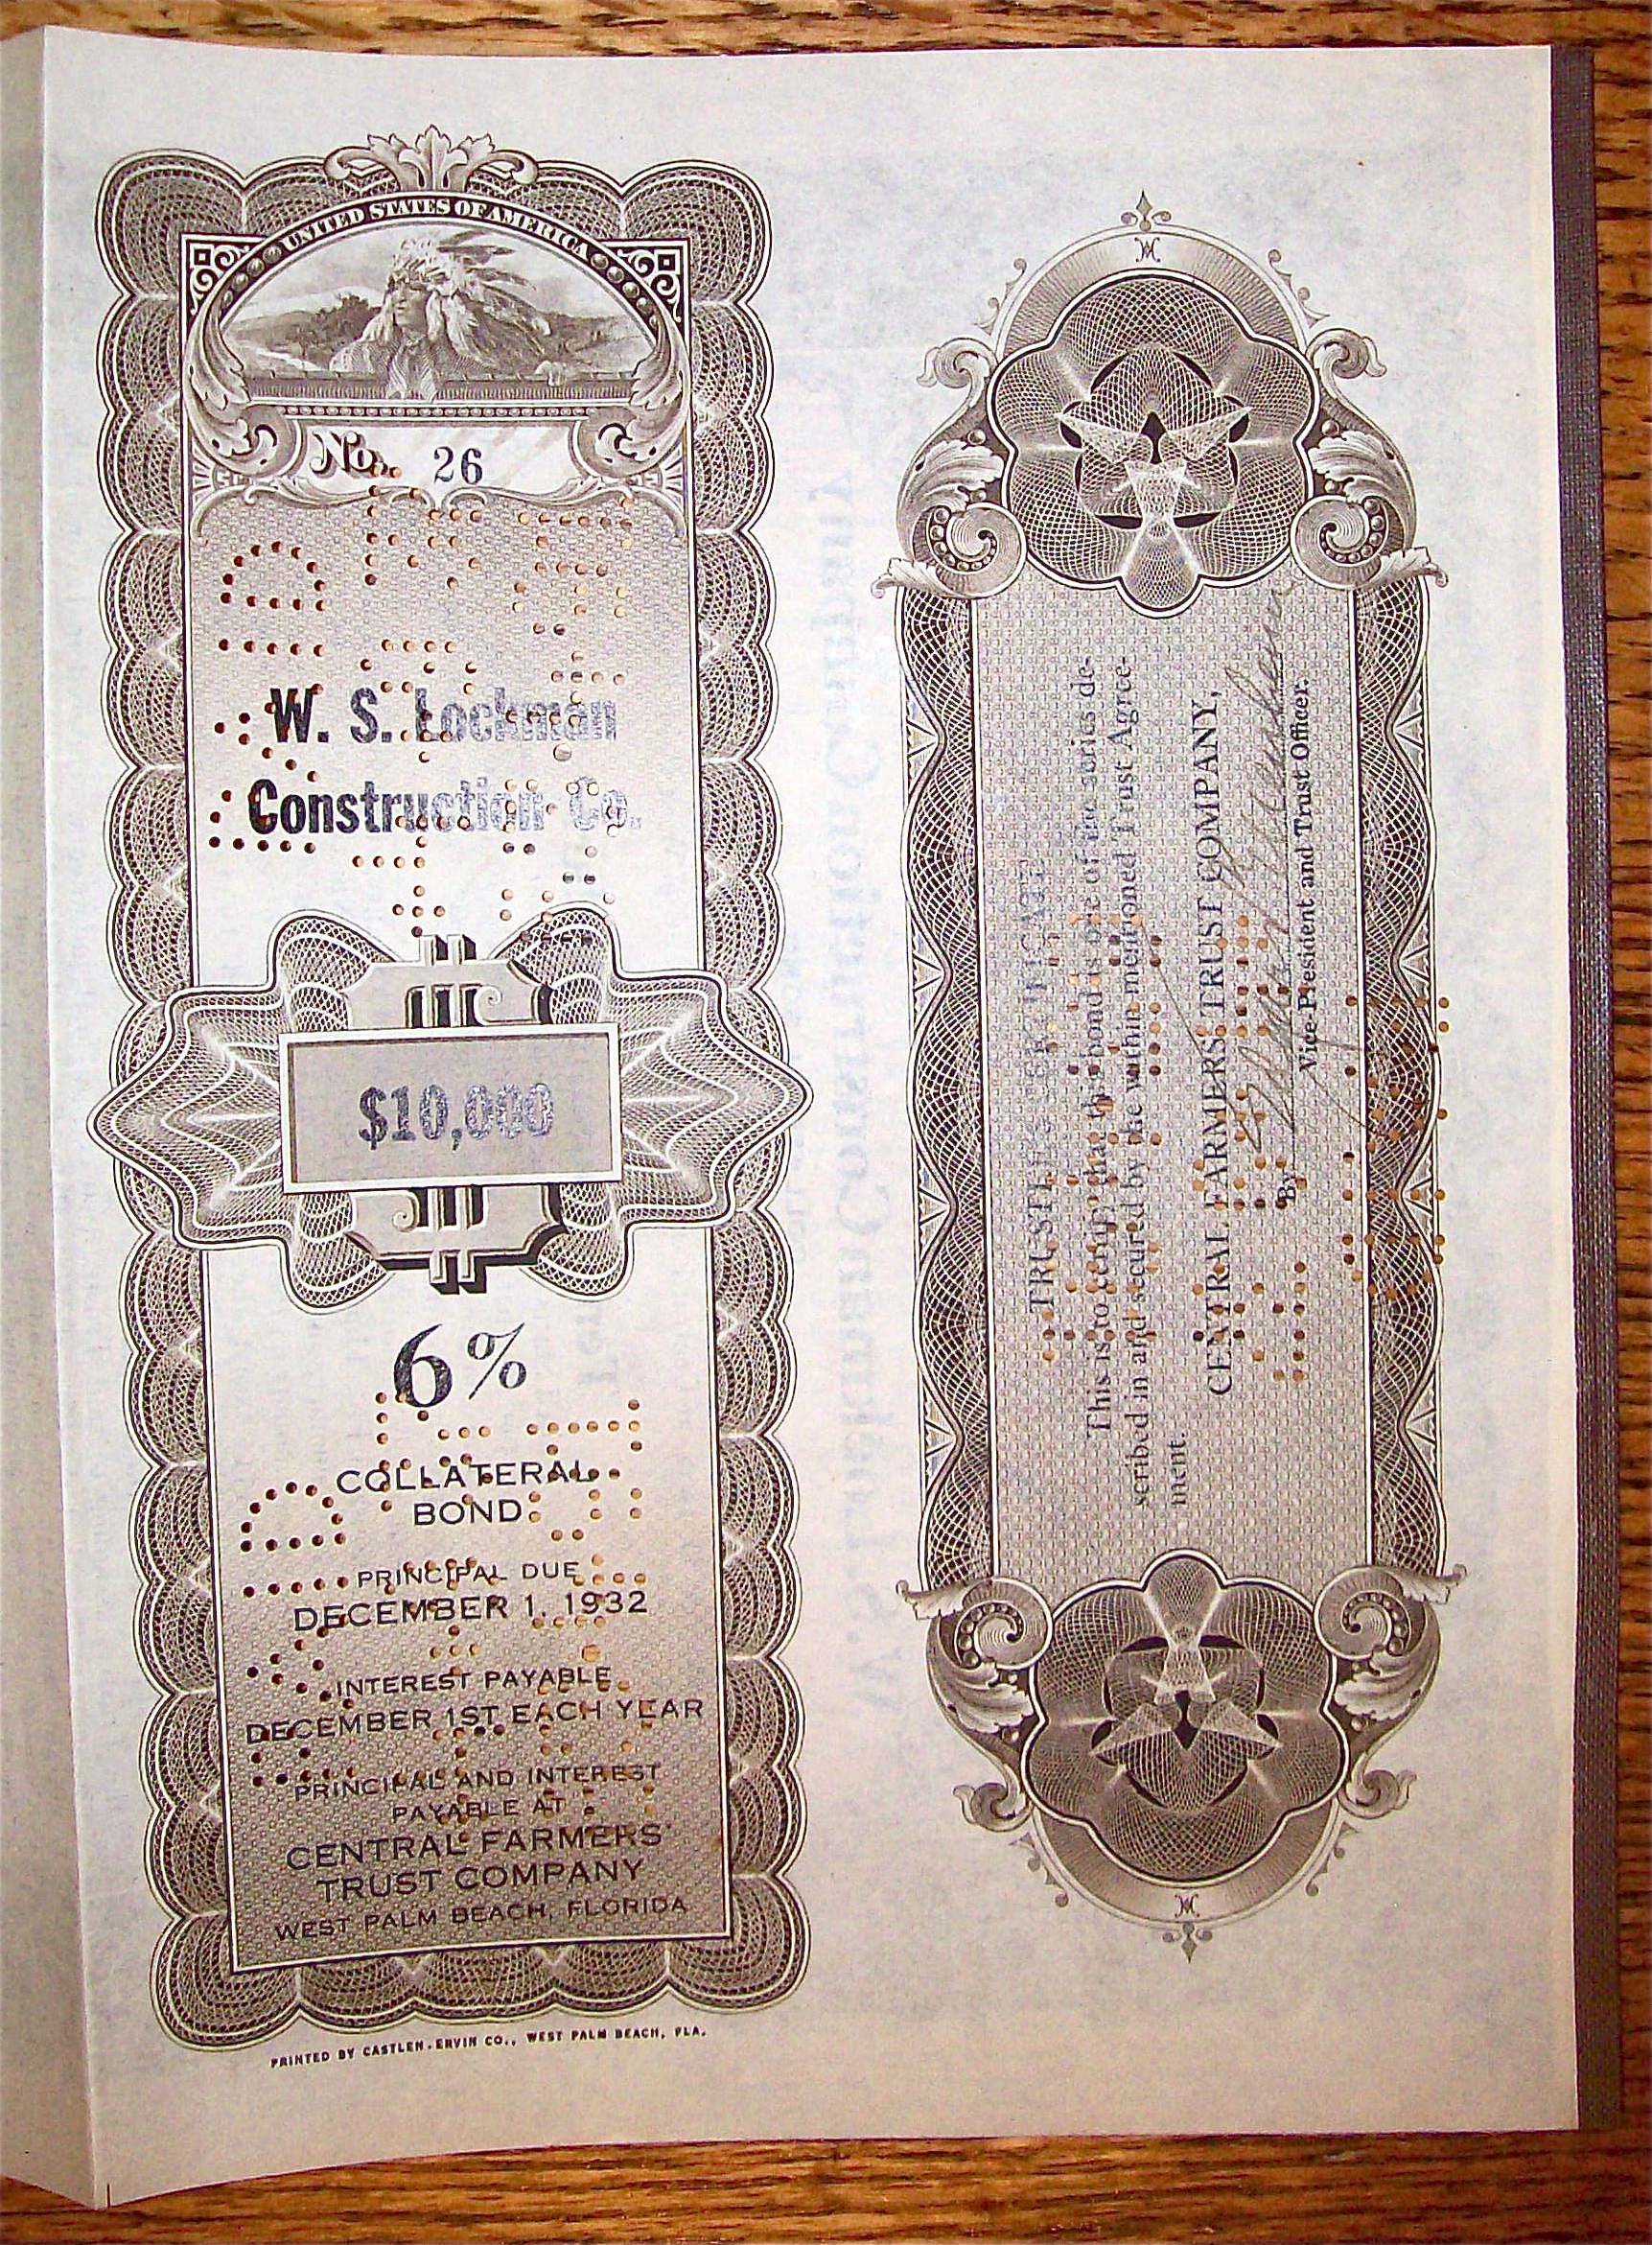 UNITED STATES OF AMERICA
No. 26
W. S. Lockman
Construction Co.
$10,000
6%
COLLATERAL
BOND
PRINCIPAL DUE
DECEMBER 1, 1932
INTEREST PAYABLE
DECEMBER 1ST EACH YEAR
PRINCIPAL AND INTEREST
PAYABLE AT
CENTRAL FARMERS'
TRUST COMPANY
WEST PALM BEACH, FLORIDA
PRINTED BY CASTLEN-ERVIN CO., WEST PALM BEACH, FLA.
TRUSTEE'S CERTIFICATE
This is to certify that this bond is one of the series de-
scribed in and secured by the within mentioned Trust Agree-
ment.
CENTRAL FARMERS TRUST COMPANY,
By
Vice-President and Trust Officer.